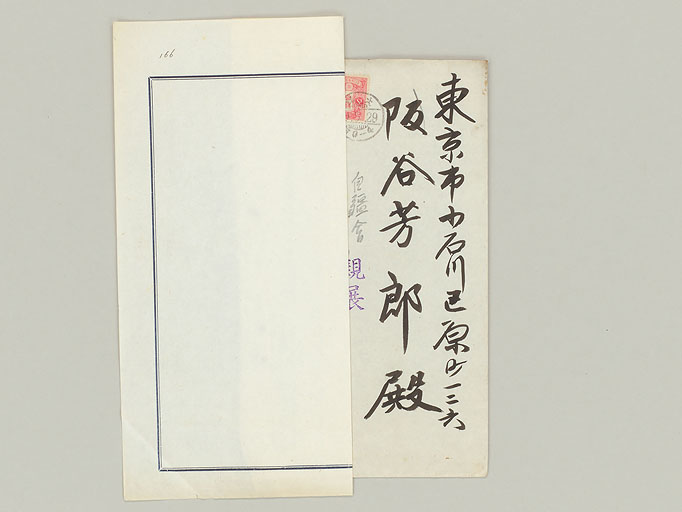 東京市小石川区原町一二六
阪谷芳郎殿
自鑑會
親展
29
166